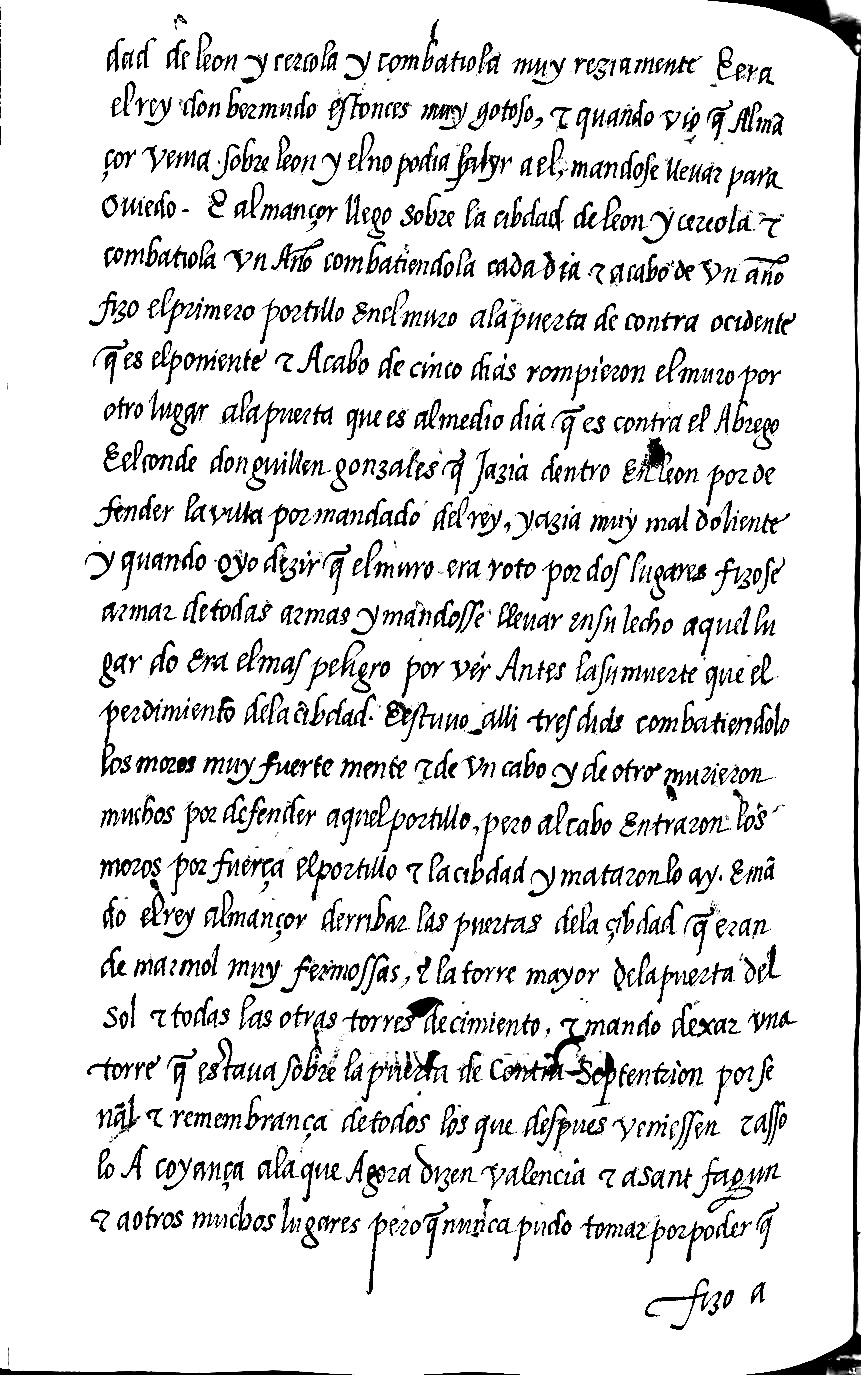 dad de leon y cercola y combatiola muy reziamente E era
el rey don bermudo estonces muy gotoso, τ quando vio q̃ Almã
çor venia sobre leon y el no podia salyr a el, mandose lleuar para
Ouiedo - E almançor llego sobre la cibdad de leon y cercola τ
combatiola vn Año combatiendola cada dia τ acabo de vn año
fizo el primero portillo En el muro ala puerta de contra ocidente
q̃ es el poniente τ Acabo de cinco dias rompieron el muro por
otro lugar ala puerta que es al medio dia q̃ es contra el Abrego
E el conde don guillen gonzales q̃ Jazia dentro En leon por de
fender la villa por mandado del rey, yazia muy mal doliente
y quando oyo dezir q̃ el muro era roto por dos lugares fizose
armar de todas armas y mandosse lleuar en su lecho aquel lu
gar do Era el mas peligro por ver Antes la su muerte que el
perdimiento dela cibdad. E estuuo alli tres dias combatiendolo
los moros muy fuerte mente τ de vn cabo y de otro murieron
muchos por defender aquel portillo, pero al cabo Entraron los
moros por fuerça el portillo τ la cibdad y mataron lo ay. E mã
do el rey almançor derribar las puertas dela çibdad q̃ eran
de marmol muy fermossas, E la torre mayor dela puerta del
Sol τ todas las otras torres de cimiento, τ mando dexar vna
torre q̃ estaua sobre la puerta de Contra Septentrion por se
ñal τ remembrança de todos los que despues veniessen τ asso
lo A coyança ala que Agora dizen valencia τ a sant fagun
τ a otros muchos lugares pero q̃ nunca pudo tomar por poder q̃
fizo a